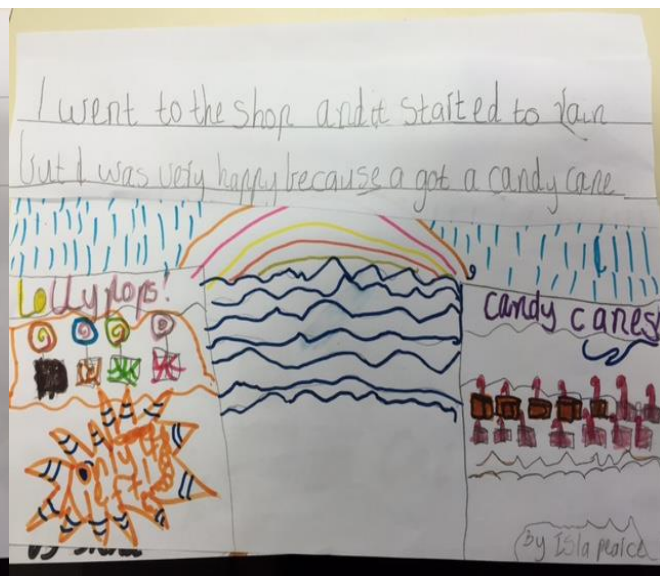 I went to the shop and it started to rain
but I was very happy because a got a candy cane
Lollypops!
candy canes
Only
left
By Isla